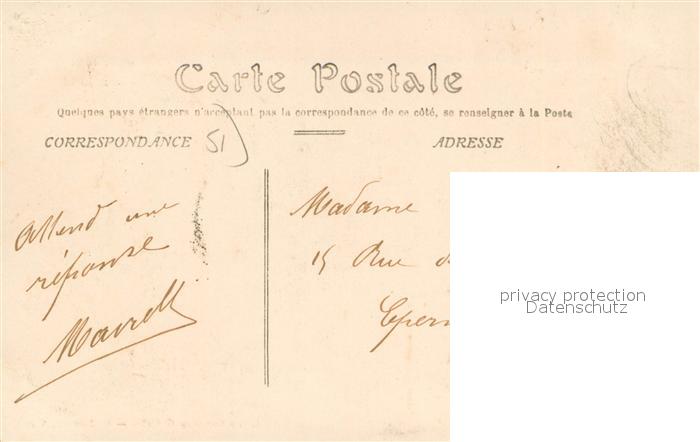 Carte Postale
Quelques pays étrangers n'acceptant pas la correspondance de ce côté, se renseigner à la Poste
CORRESPONDANCE 51
ADRESSE
Attend une
réponse
Madame
15 Rue d
Epern
privacy protection
Datenschutz